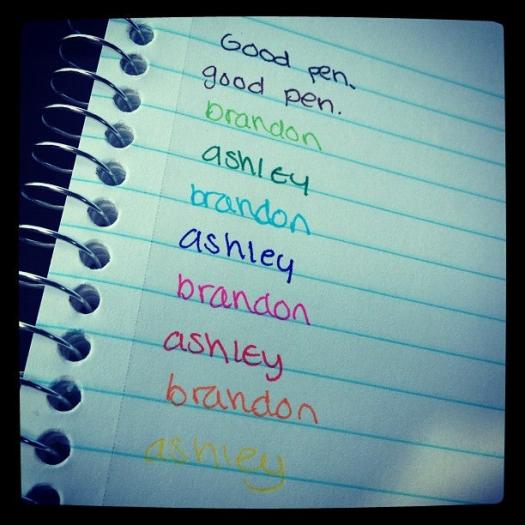 Good pen.
good pen.
brandon
ashley
brandon
ashley
brandon
ashley
brandon
ashley